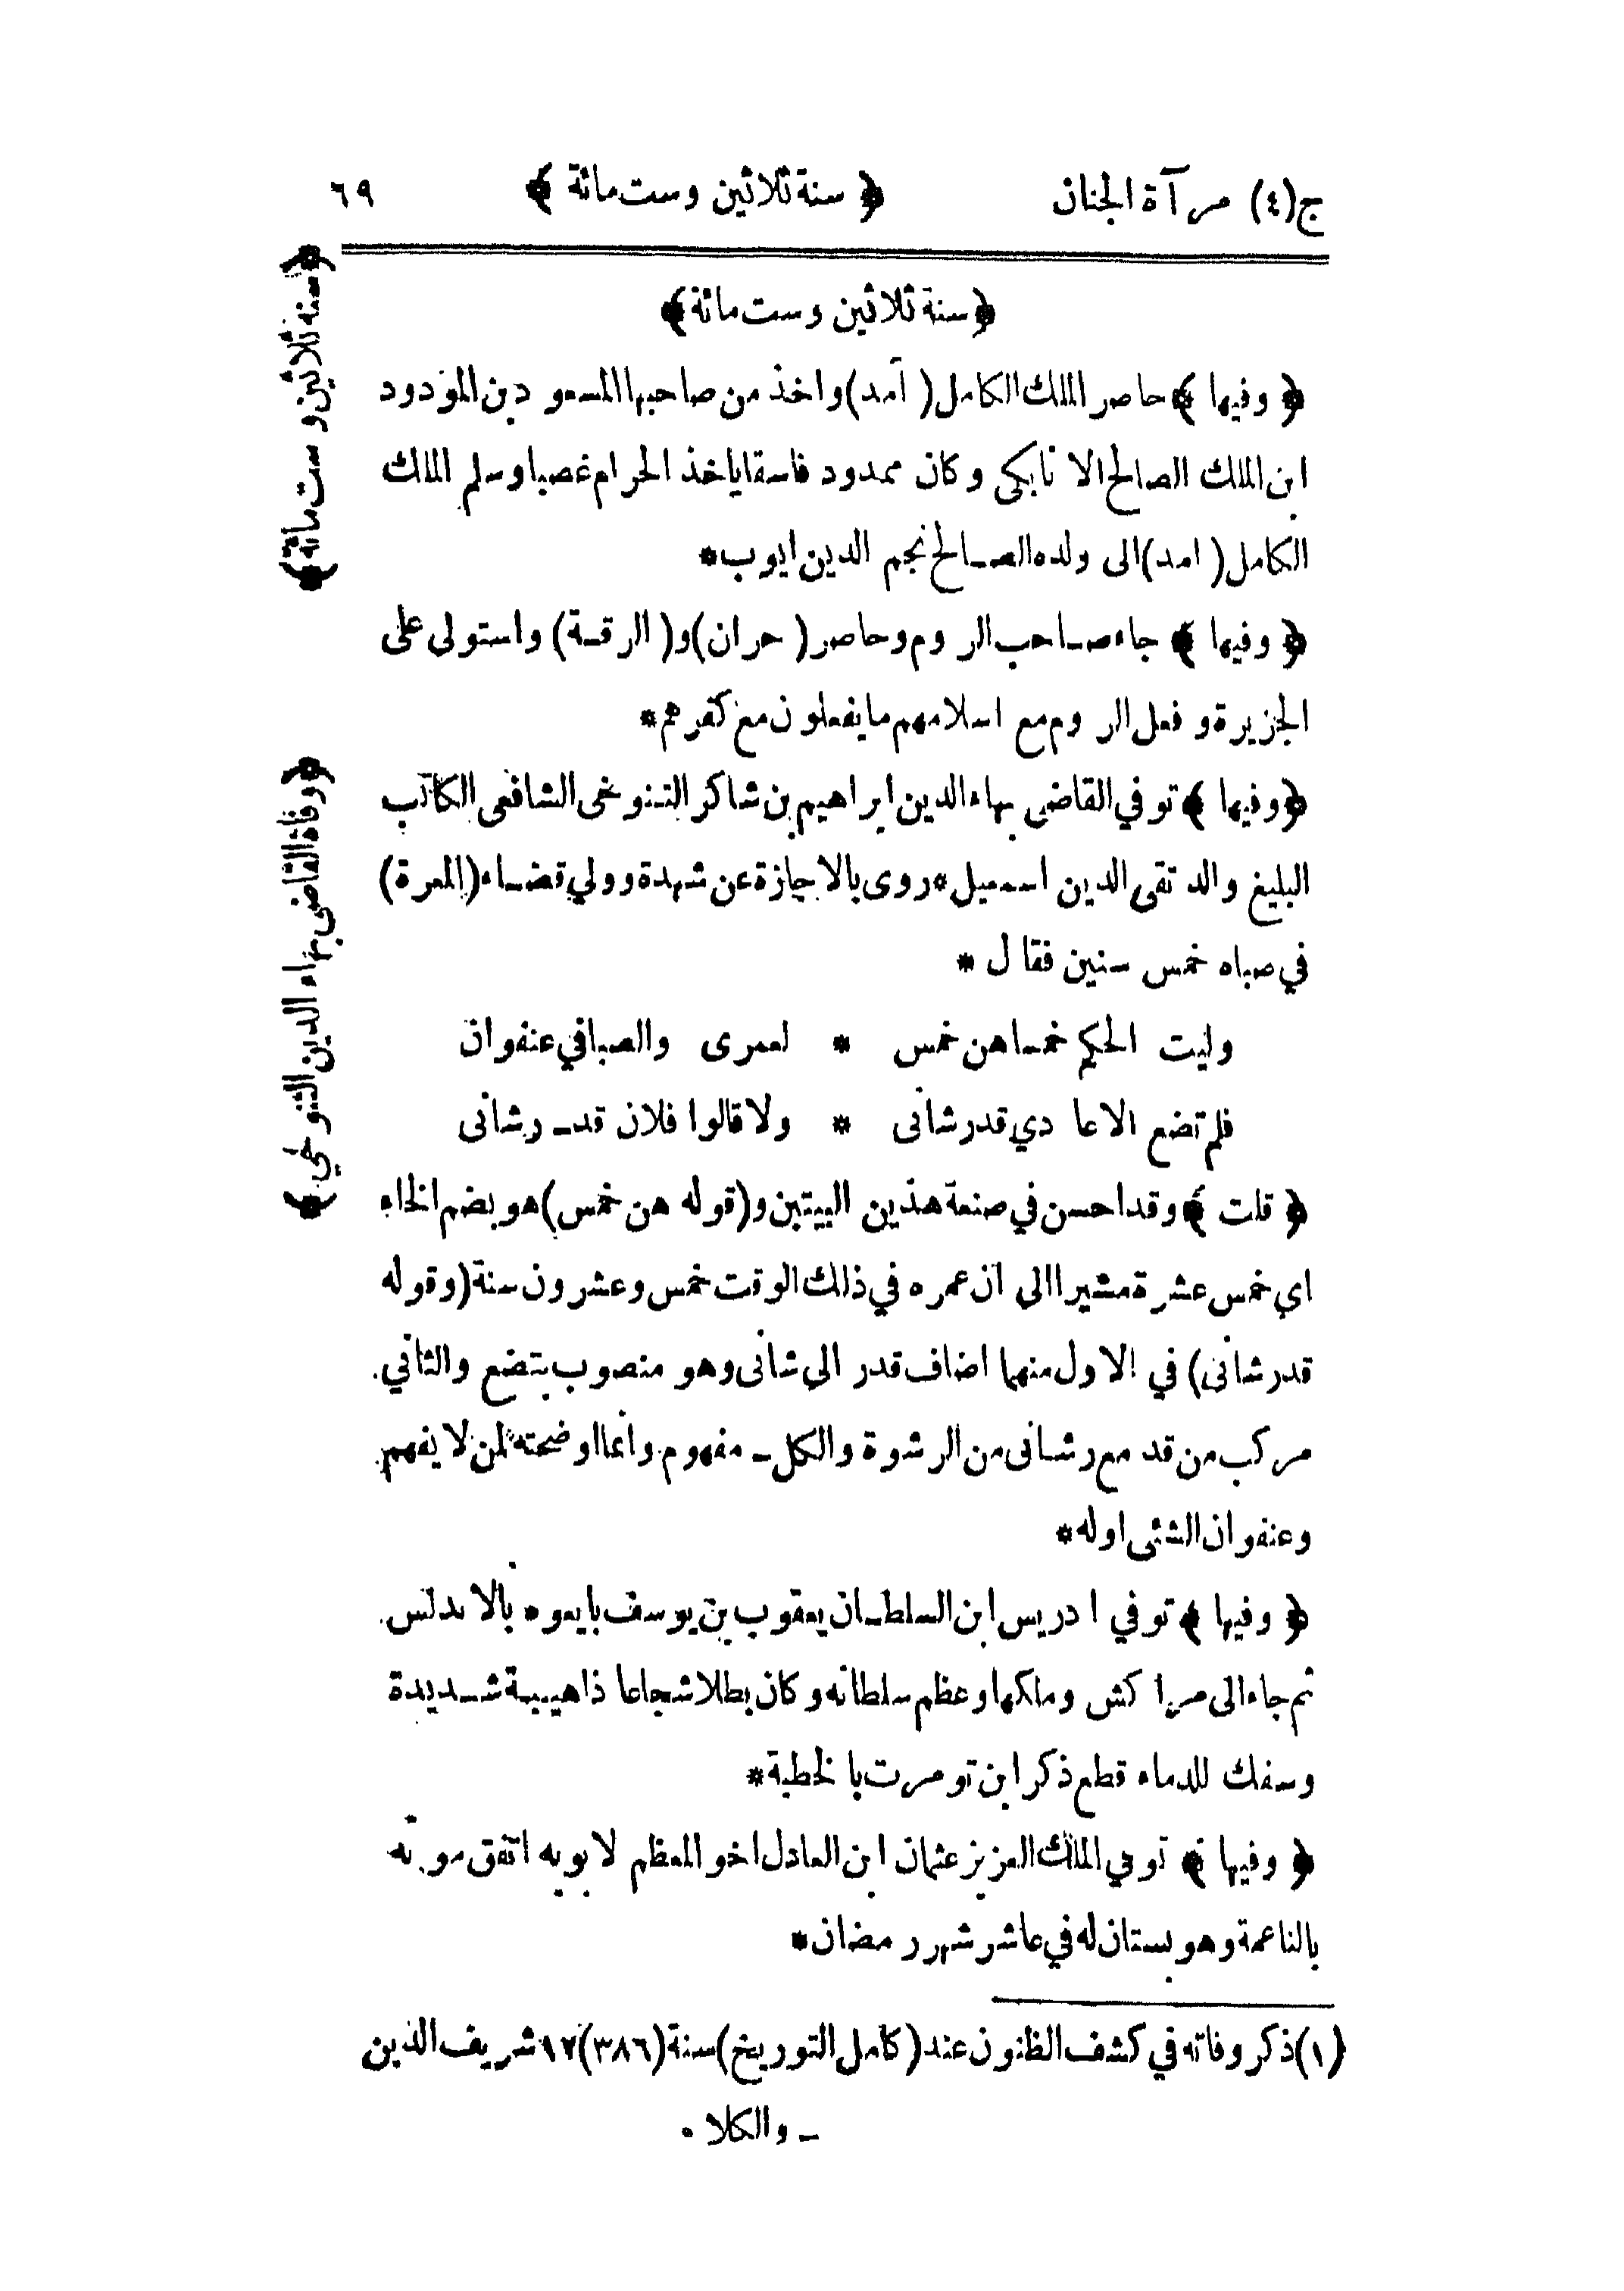 ج(٤) مرآة الجنان ﴿ سنة ثلاثين وست مائة ﴾ ٦٩
﴿سنة ثلاثين وست مائة﴾
﴿ وفيها ﴾ حاصر الملك الكامل ( آمد) واخذ من صاحبها المسعود بن المودود
ابن الملك الصالح الا تابكى وكان ممدود فاسقا ياخذ الحرام غصبا وسلم الملك
الكامل ( امد) الى ولده الصالح نجم الدين ايوب*
﴿ وفيها ﴾ جاء صاحب الروم وحاصر ( حران) و( الرقة) واستولى على
الجزيرة وفعل الروم مع اسلامهم ما يفعلون مع كفرهم*
﴿وفيها ﴾ توفي القاضى بهاء الدين ابراهيم بن شاكر التنوخى الشافعى الكاتب
البليغ والد تقى الدين اسمعيل* روى بالاجازة عن شهدة وولي قضاء (المعرة)
في صباه خمس سنين فقال *
وليت الحكم خمسا هن خمس * لعمرى والصبافي عنفوان
فلم تضع الاعادي قدر شانى * ولا قالوا فلان قد رشانى
﴿ قلت ﴾ وقد احسن في صنعة هذين البيتين و(قوله هن خمس) هو بضم الخاء
اي خمس عشرة مشيرا الى ان عمره في ذلك الوقت خمس وعشرون سنة (وقوله
قدر شانى) في الاول منهما اضاف قدر الى شانى وهو منصوب بتضع والثاني
مركب من قد مع رشانى من الرشوة والكل مفهوم وانما اوضحته لمن لا يفهم
وعنفوان الشئى اوله*
﴿ وفيها ﴾ توفي ادريس ابن السلطان يعقوب بن يوسف بايعوه بالاندلس
ثم جاء الى مراكش وملكها وعظم سلطانه وكان بطلا شجاعا ذا هيبة شديدة
وسفك للدماء قطع ذكر ابن تومرت بالخطبة*
﴿ وفيها ﴾ توفي الملك العزيز عثمان ابن العادل اخو المعظم لابويه اتفق موته
بالناعمة وهو بستان له في عاشر شهر رمضان*
(١) ذكر وفاته في كشف الظنون عند (كامل التوريخ) سنة (٣٨٦) ١٢ شريف الدين
ـ والكلا ٠
﴿سنة ثلاثين وست مائة﴾
﴿وفاة القاضى بهاء الدين التنوخي﴾